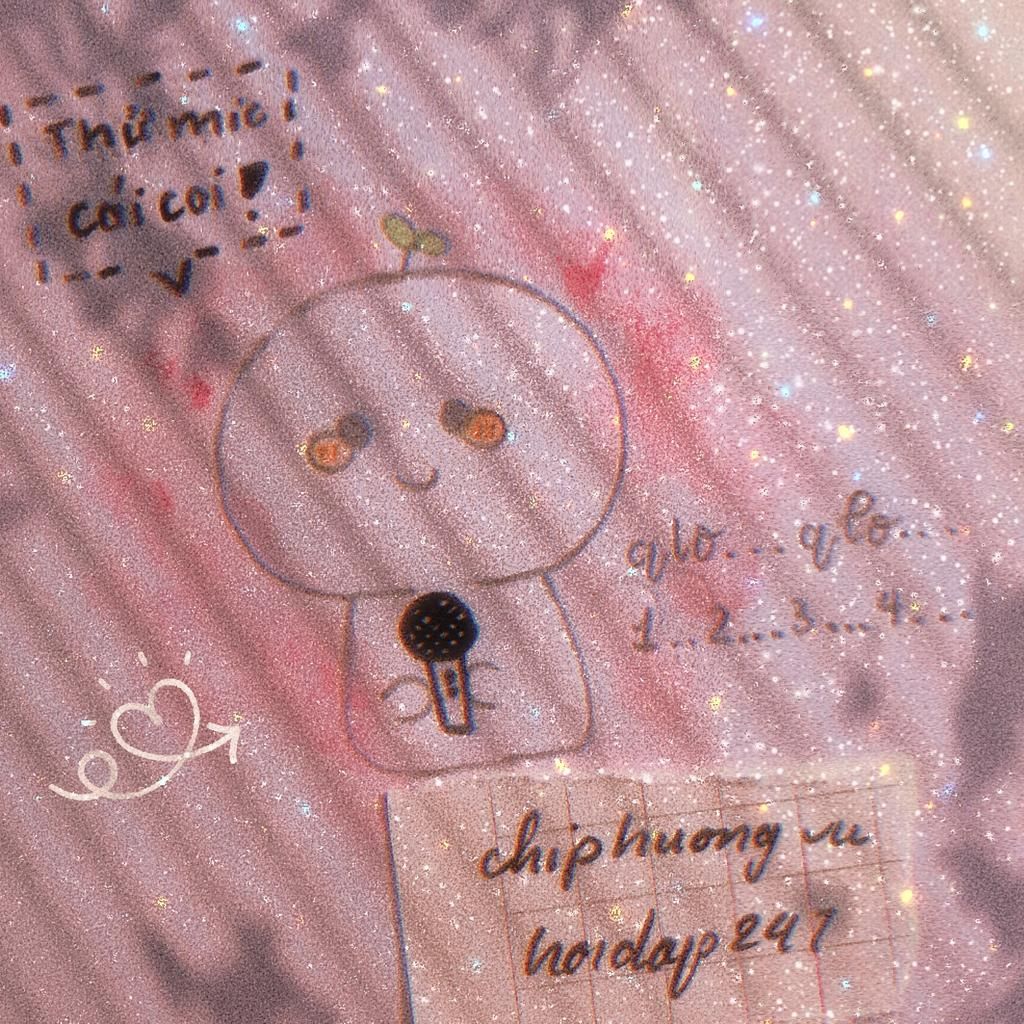 Thử mic
cái coi!
qlo... qlo...
1...2...3...4...
chiphuong vu
hoidap247